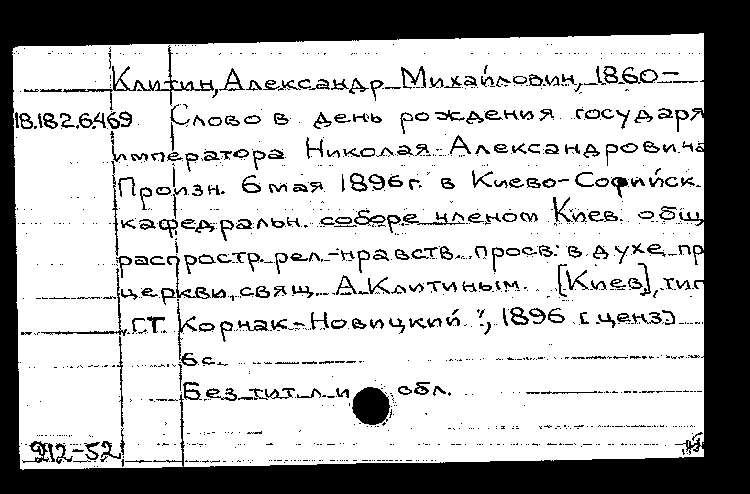 Клитин, Александр Михайлович, 1860-
18.182.6.469 Слово в день рождения государя
императора Николая Александровича
Произн. 6 мая 1896 г. в Киево-Софийск.
кафедральн. соборе членом Киев. общ.
распростр. рел.-нравств. просв. в духе пр
церкви, свящ. А. Клитиным. [Киев], тип
„Г.Т. Корчак-Новицкий", 1896 [ценз]
6 с.
Без тит. л. и обл.
212-52